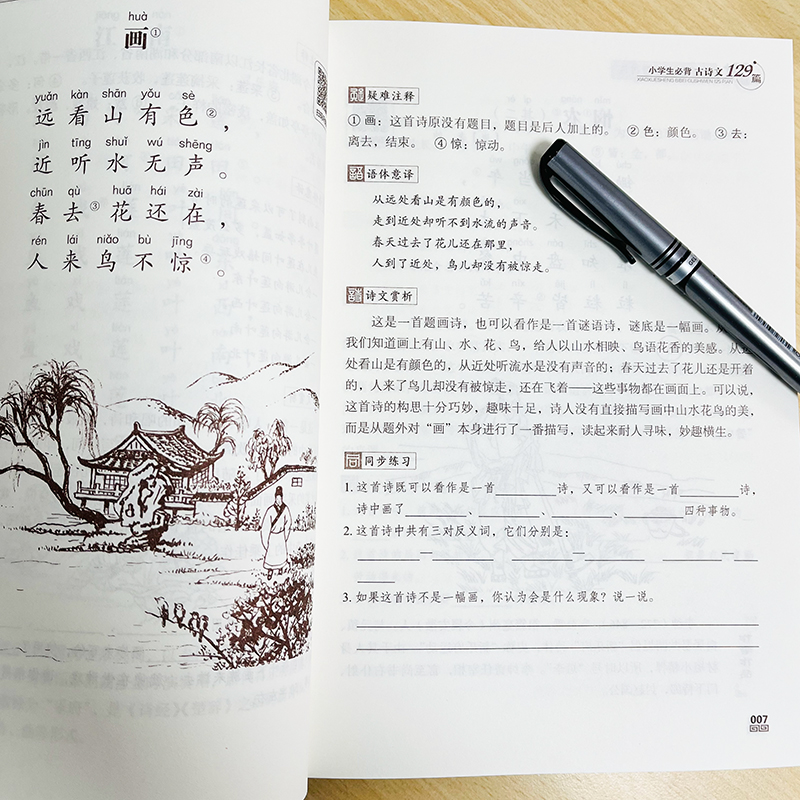 huà
画①
yuǎn kàn shān yǒu sè
远看山有色②，
jìn tīng shuǐ wú shēng
近听水无声。
chūn qù huā hái zài
春去③花还在，
rén lái niǎo bù jīng
人来鸟不惊④。
小学生必背 古诗文 129篇
疑难注释
① 画：这首诗原没有题目，题目是后人加上的。 ② 色：颜色。 ③ 去：
离去，结束。 ④ 惊：惊动。
语体意译
从远处看山是有颜色的，
走到近处却听不到水流的声音。
春天过去了花儿还在那里，
人到了近处，鸟儿却没有被惊走。
诗文赏析
这是一首题画诗，也可以看作是一首谜语诗，谜底是一幅画。
我们知道画上有山、水、花、鸟，给人以山水相映、鸟语花香的美感。从远
处看山是有颜色的，从近处听流水是没有声音的；春天过去了花儿还是开着
的，人来了鸟儿却没有被惊走，还在飞着——这些事物都在画面上。可以说，
这首诗的构思十分巧妙，趣味十足，诗人没有直接描写画中山水花鸟的美，
而是从题外对“画”本身进行了一番描写，读起来耐人寻味，妙趣横生。
同步练习
1. 这首诗既可以看作是一首________诗，又可以看作是一首________诗，
诗中画了________、________、________、________四种事物。
2. 这首诗中共有三对反义词，它们分别是：
________—________ ________—________ ________—
________
3. 如果这首诗不是一幅画，你认为会是什么现象？说一说。
007